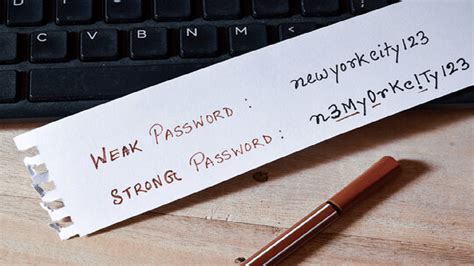 C V B N M
WEAK PASSWORD : newyorkcity123
STRONG PASSWORD : n3MyOrKc!Ty123